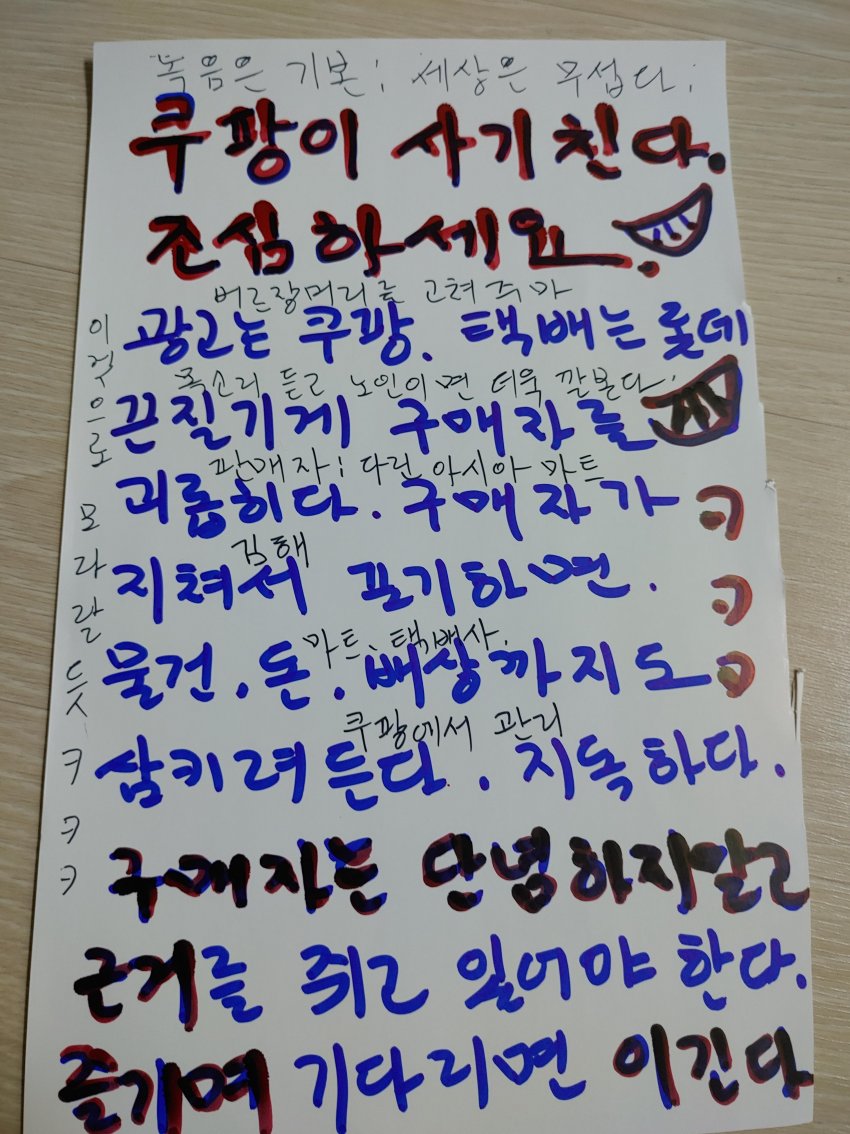 녹음은 기본; 세상은 무섭다;
쿠팡이 사기친다.
조심하세요.
버르장머리를 고쳐주마
광고는 쿠팡. 택배는 롯데
목소리 듣고 노인이면 더욱 깔본다;
끈질기게 구매자를
판매자; 다린 아시아 마트
괴롭히다. 구매자가
김해
지쳐서 포기하면.
마트. 택배사.
물건. 돈. 배상까지도
쿠팡에서 관리
삼키려든다. 지독하다.
구매자는 단념하지말고
근거를 쥐고 있어야 한다.
즐기며 기다리면 이긴다
이것으로 모라랄듯 ㅋㅋㅋ
ㅋ
ㅋ
ㅋ